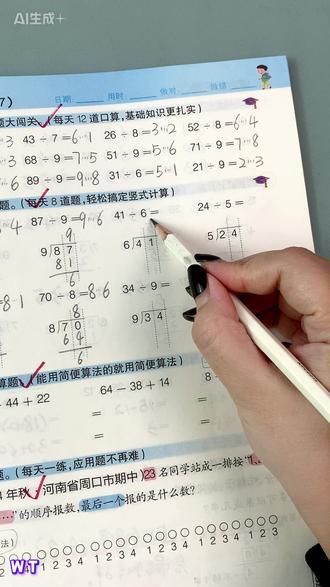 AI生成+
7)
日期: 用时: 做对: 做错:
题大闯关(每天12道口算,基础知识更扎实)
43÷7=6…1 26÷8=3…2 52÷8=6…4
68÷9=7…5 51÷9=5…6 71÷9=7…8
89÷9=9…8 31÷6=5…1 21÷9=2…3
题。(每天8道题,轻松搞定竖式计算)
87÷9=9…6 41÷6= 24÷5=
9
9 87 6 41 5 24
81
6
70÷8=8…6 34÷9=
8
8 70 9 34
64
6
算题(能用简便算法的就用简便算法)
44+22 64-38+14 8
= =
= =
题。(每天一练,应用题不再难)
4年秋 河南省周口市期中)23名同学站成一排按“1
…”的顺序报数,最后一个报的是什么数?
法)
2 3 4 1 2 3 4 1 2 3 4 1 2 3
W.T